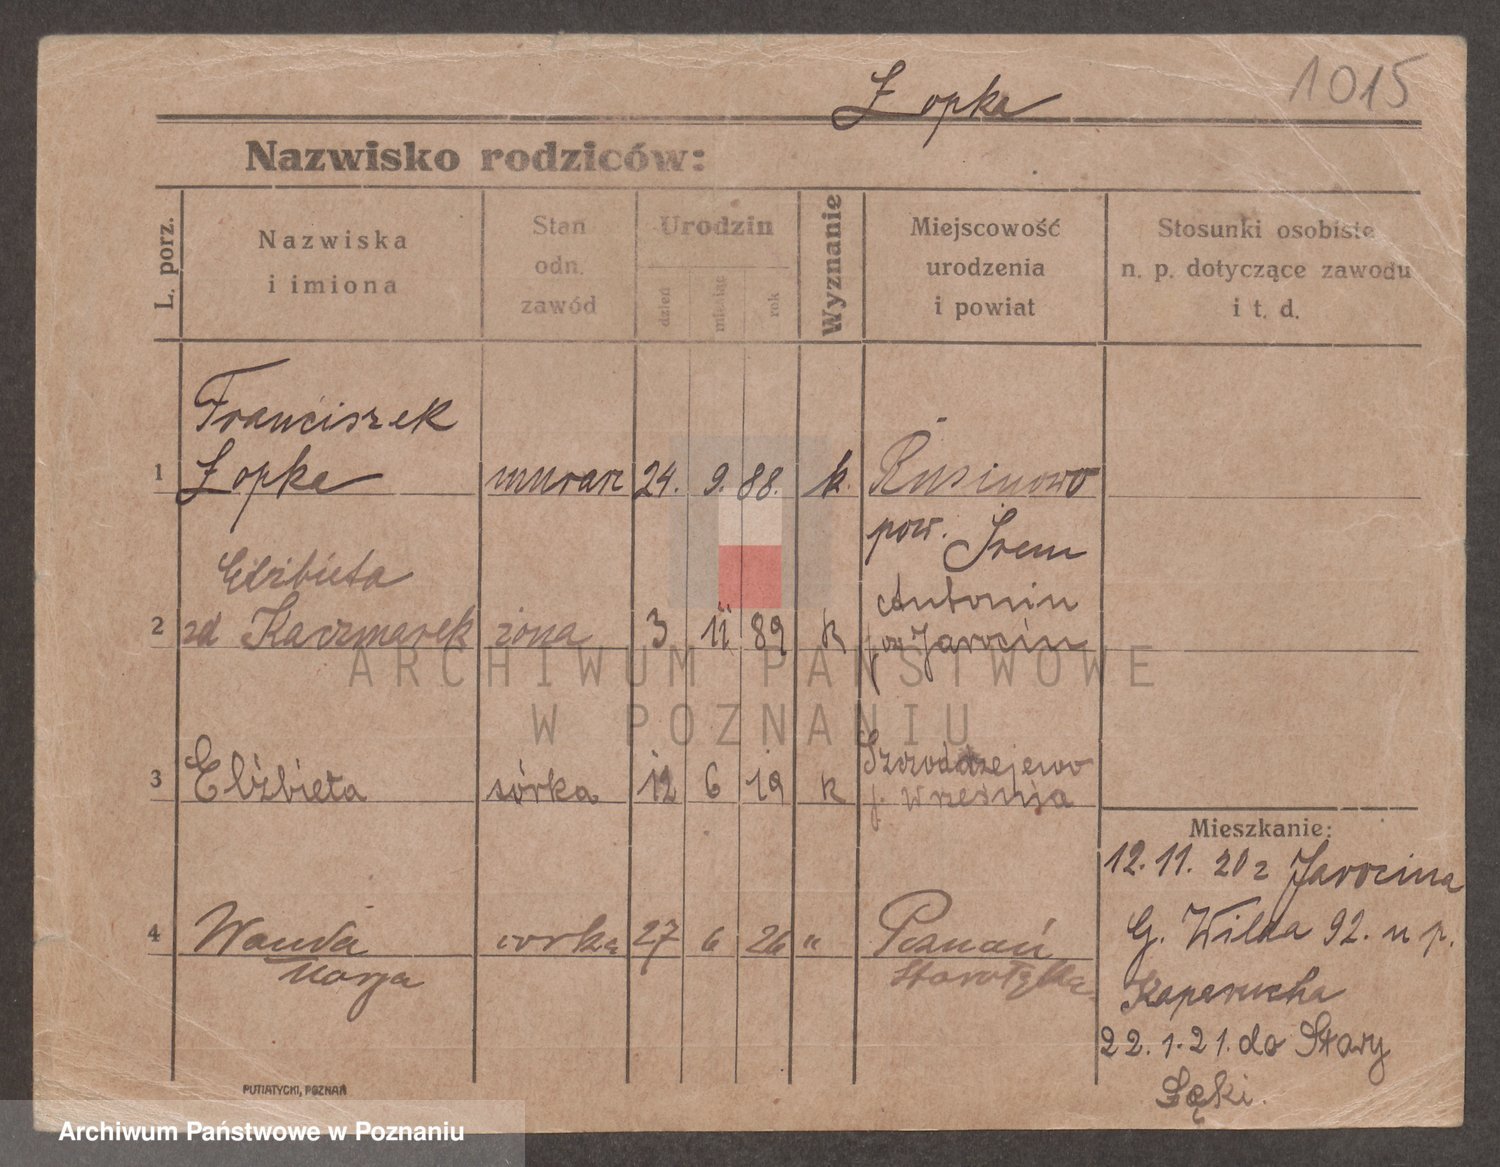 1015
Łopka
Nazwisko rodziców:
L. porz.
Nazwiska
i imiona
Stan
odn.
zawód
Urodzin
dzień
miesiąc
rok
Wyznanie
Miejscowość
urodzenia
i powiat
Stosunki osobiste
n. p. dotyczące zawodu
i t. d.
Franciszek
1 Łopka murarz 24. 9. 88. k. Rusinowo
pow. Śrem
Elżbieta
Antonin
2 zd Kaczmarek żona 3 11 89 k Jarocin
3 Elżbieta córka 12 6 19 k
Września
4 Wanda córka 27 6 26 " Poznań
Marja
Starołęka
Mieszkanie:
12.11. 20 z Jarocina
G. Wilda 92. u p.
Kaperucha
22.1.21. do Stary
Łęki.
PUTIATYCKI, POZNAŃ
ARCHIWUM PAŃSTWOWE
W POZNANIU
Archiwum Państwowe w Poznaniu